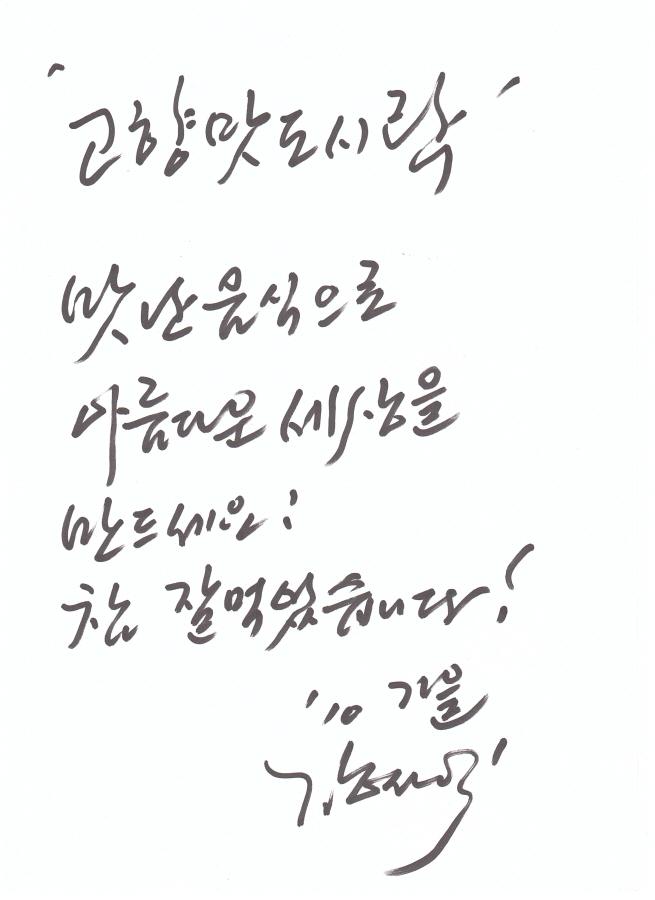 '고향맛도시락'
맛난음식으로
아름다운 세상을
만드세요!
참 잘먹었습니다!
'10 가을